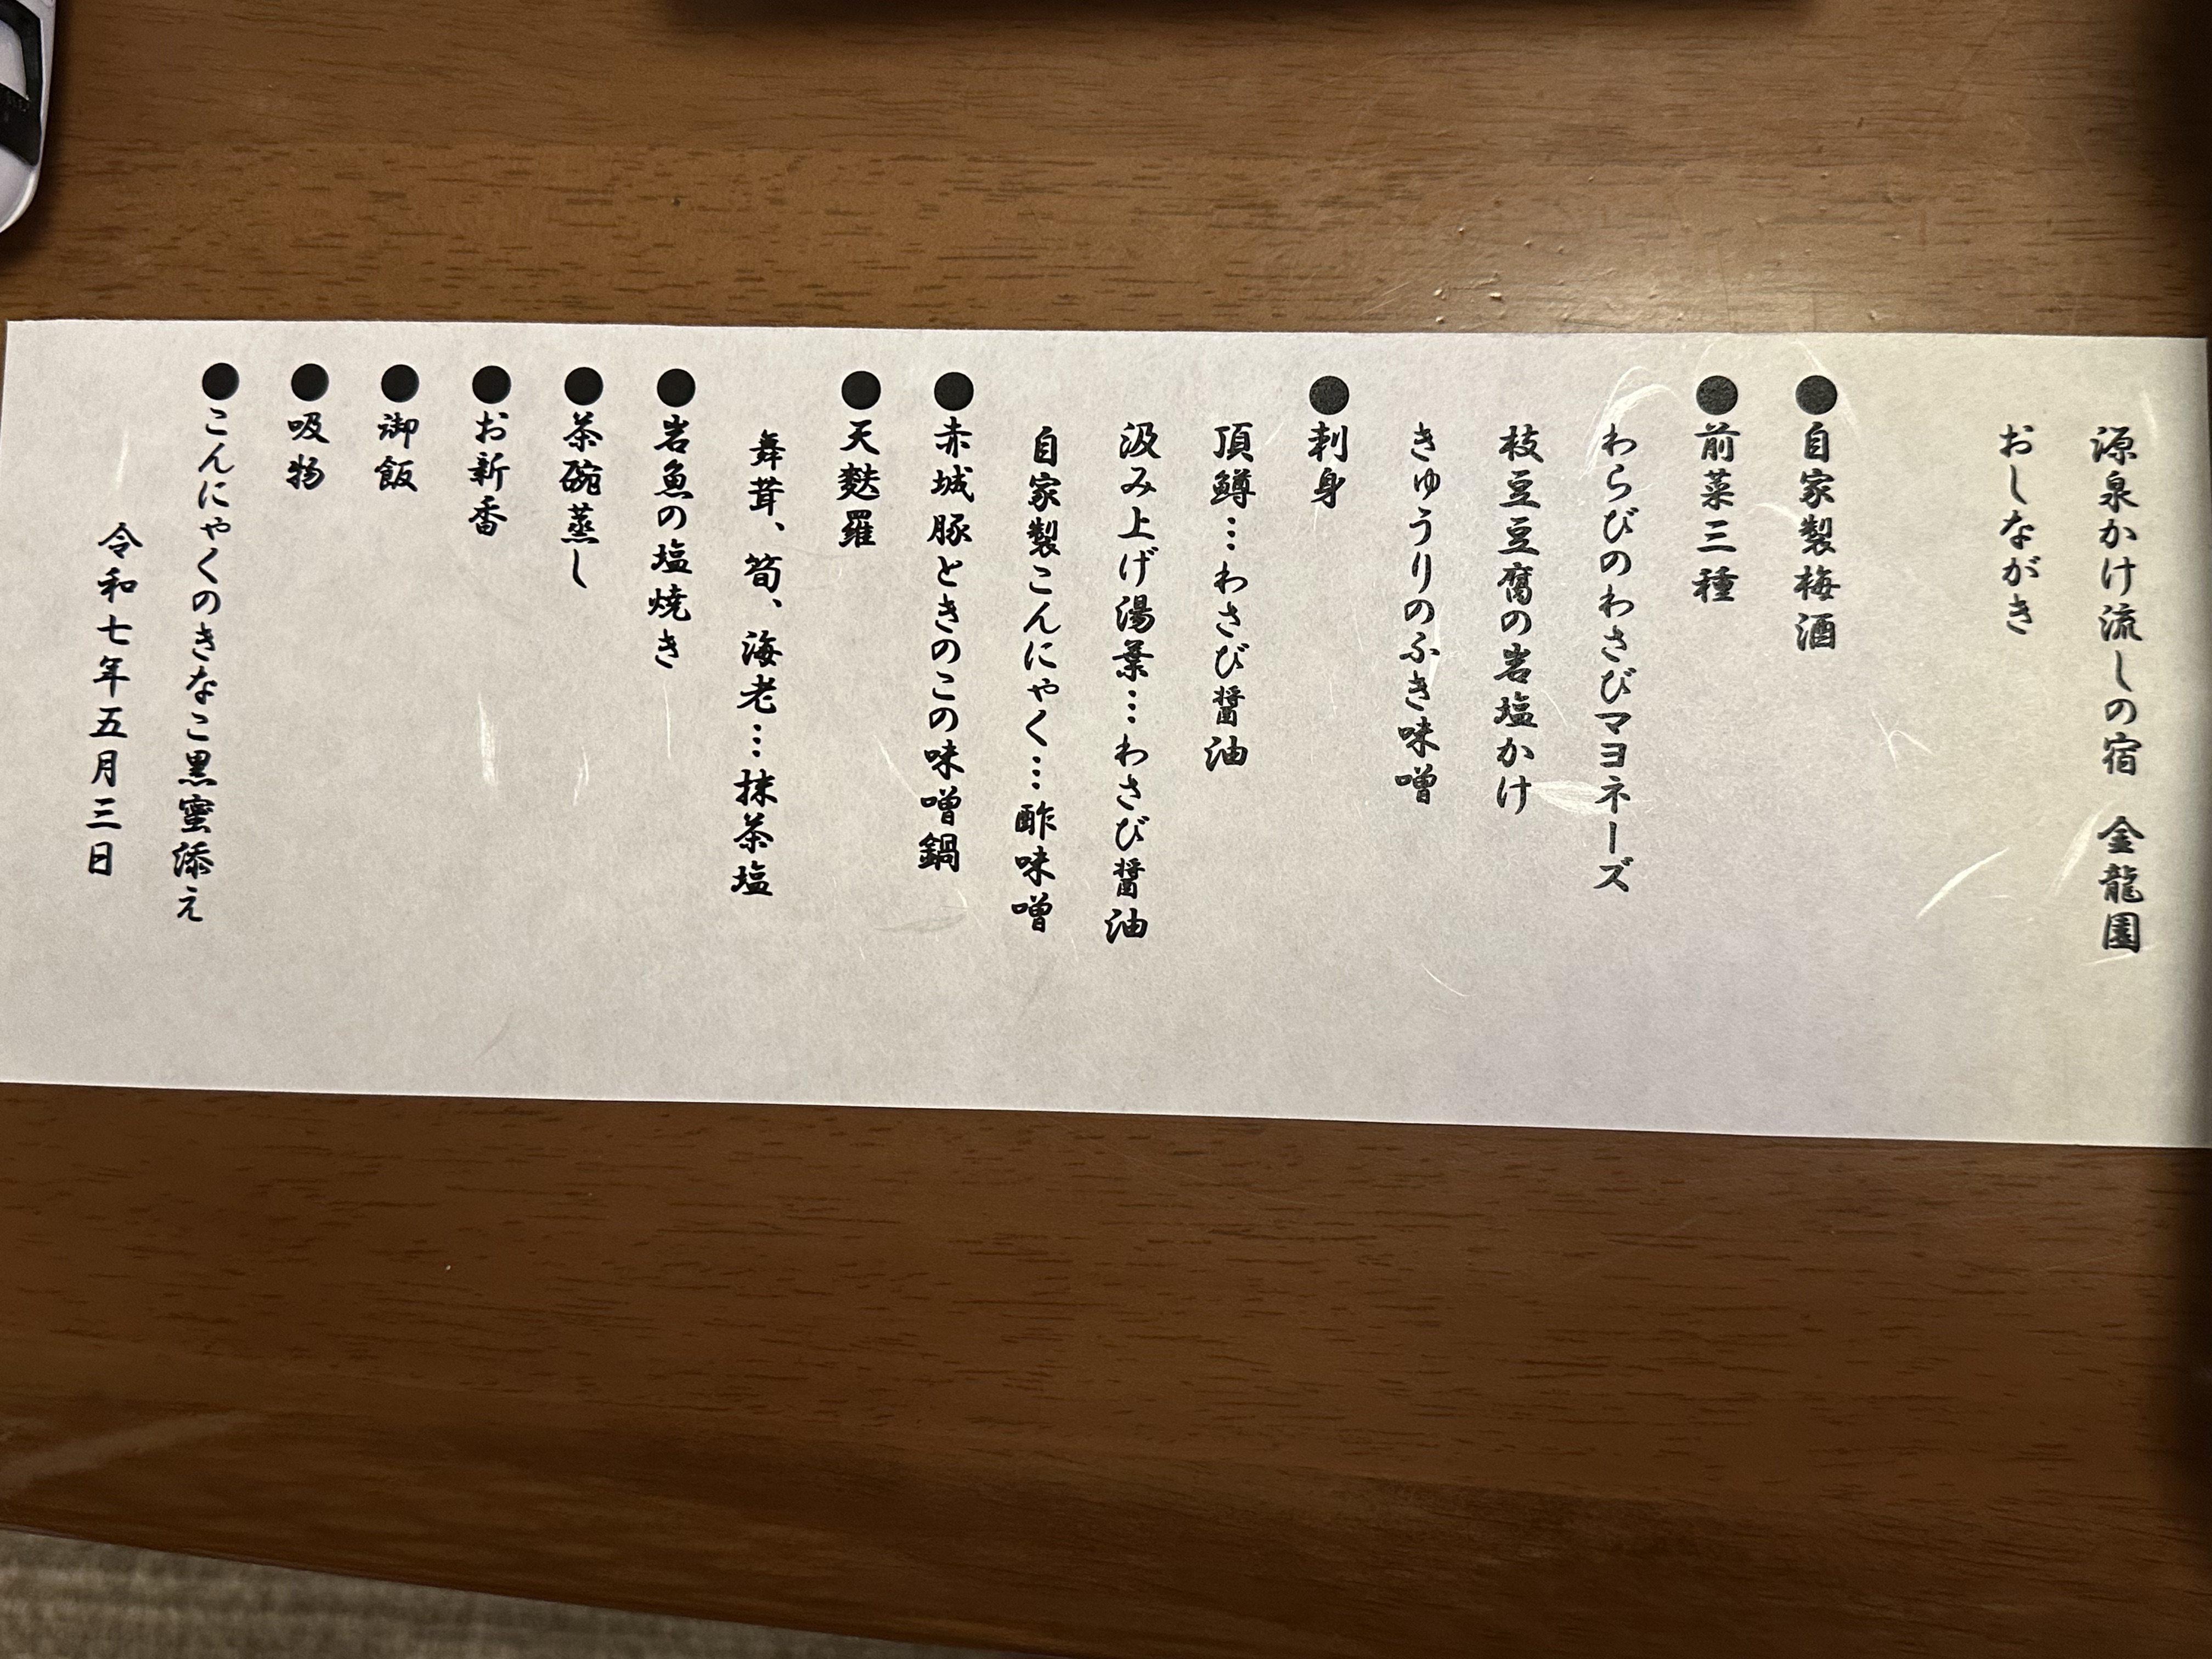 源泉かけ流しの宿　金龍園
おしながき
●自家製梅酒
●前菜三種
わらびのわさびマヨネーズ
枝豆豆腐の岩塩かけ
きゅうりのふき味噌
●刺身
頂鱒…わさび醤油
汲み上げ湯葉…わさび醤油
自家製こんにゃく…酢味噌
●赤城豚ときのこの味噌鍋
●天麩羅
舞茸、筍、海老…抹茶塩
●岩魚の塩焼き
●茶碗蒸し
●お新香
●御飯
●吸物
●こんにゃくのきなこ黒蜜添え
令和七年五月三日